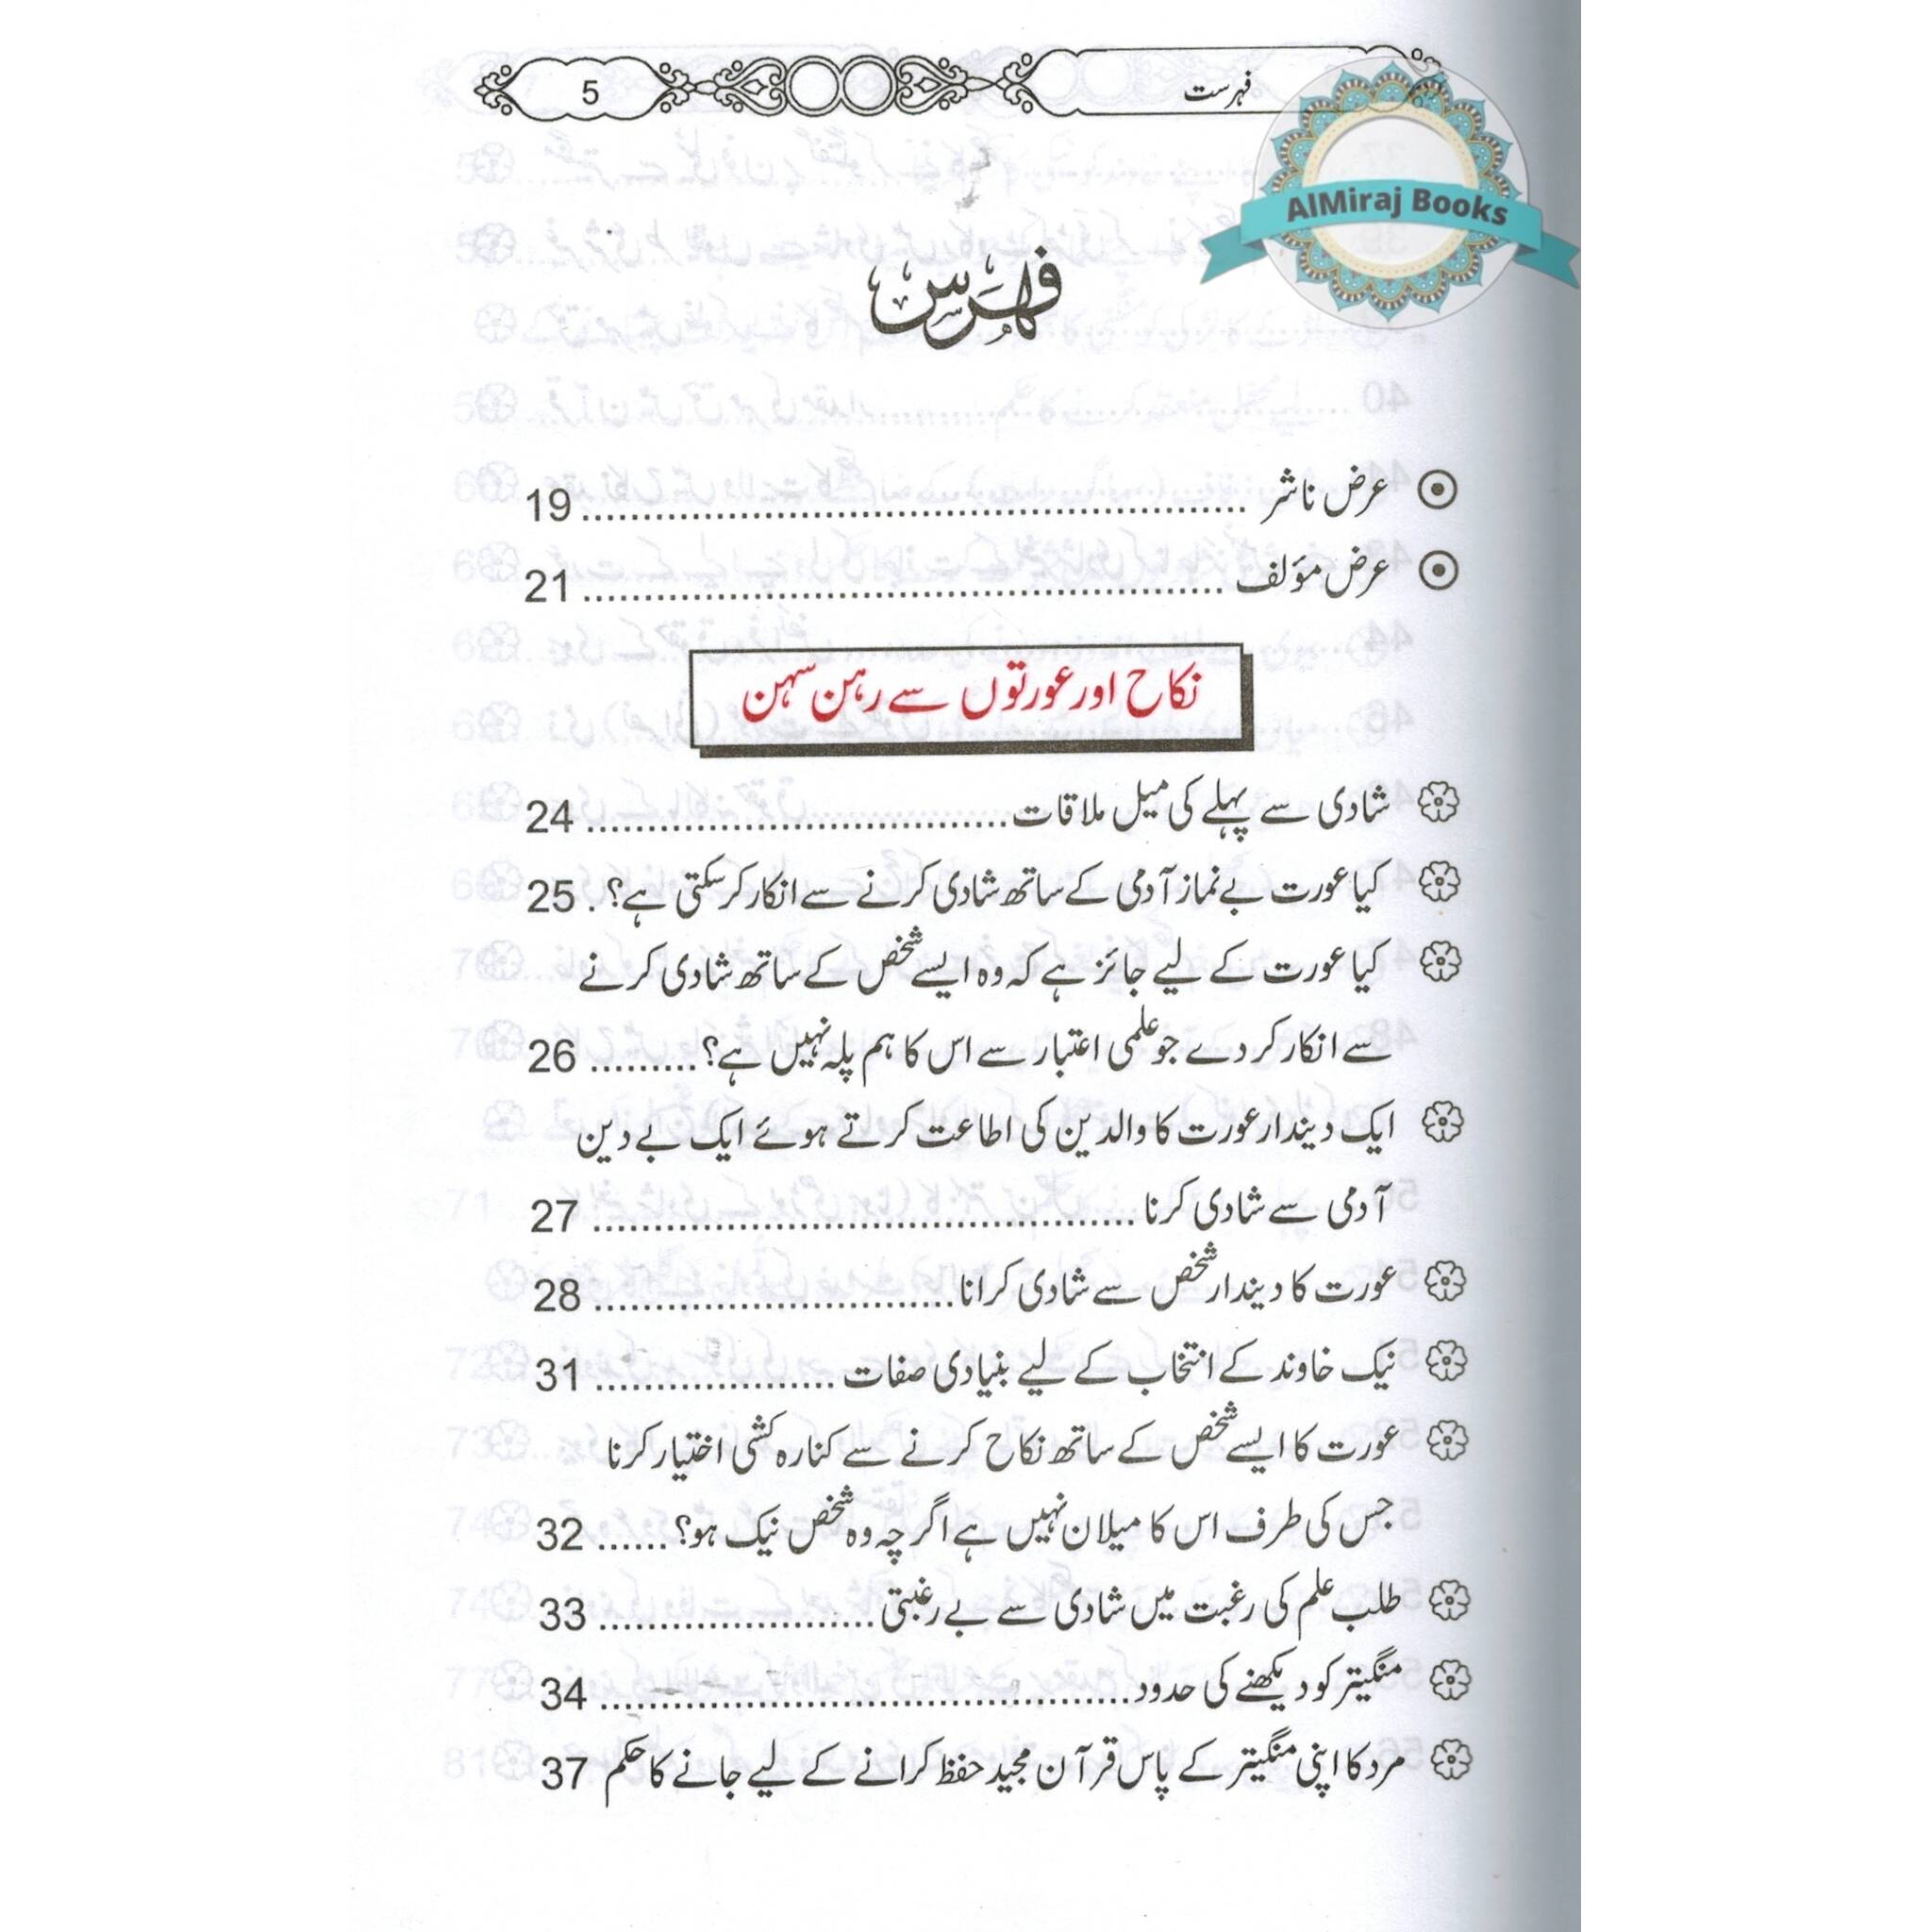 فہرست
5
AlMiraj Books
فہرس
عرض ناشر ........ 19
عرض مؤلف ........ 21
نکاح اور عورتوں سے رہن سہن
شادی سے پہلے کی میل ملاقات ........ 24
کیا عورت بے نماز آدمی کے ساتھ شادی کرنے سے انکار کر سکتی ہے؟ . 25
کیا عورت کے لیے جائز ہے کہ وہ ایسے شخص کے ساتھ شادی کرنے
سے انکار کر دے جو علمی اعتبار سے اس کا ہم پلہ نہیں ہے؟ ........ 26
ایک دیندار عورت کا والدین کی اطاعت کرتے ہوئے ایک بے دین
آدمی سے شادی کرنا ........ 27
عورت کا دیندار شخص سے شادی کرانا ........ 28
نیک خاوند کے انتخاب کے لیے بنیادی صفات ........ 31
عورت کا ایسے شخص کے ساتھ نکاح کرنے سے کنارہ کشی اختیار کرنا
جس کی طرف اس کا میلان نہیں ہے اگرچہ وہ شخص نیک ہو؟ ...... 32
طلب علم کی رغبت میں شادی سے بے رغبتی ........ 33
منگیتر کو دیکھنے کی حدود ........ 34
مرد کا اپنی منگیتر کے پاس قرآن مجید حفظ کرانے کے لیے جانے کا حکم 37